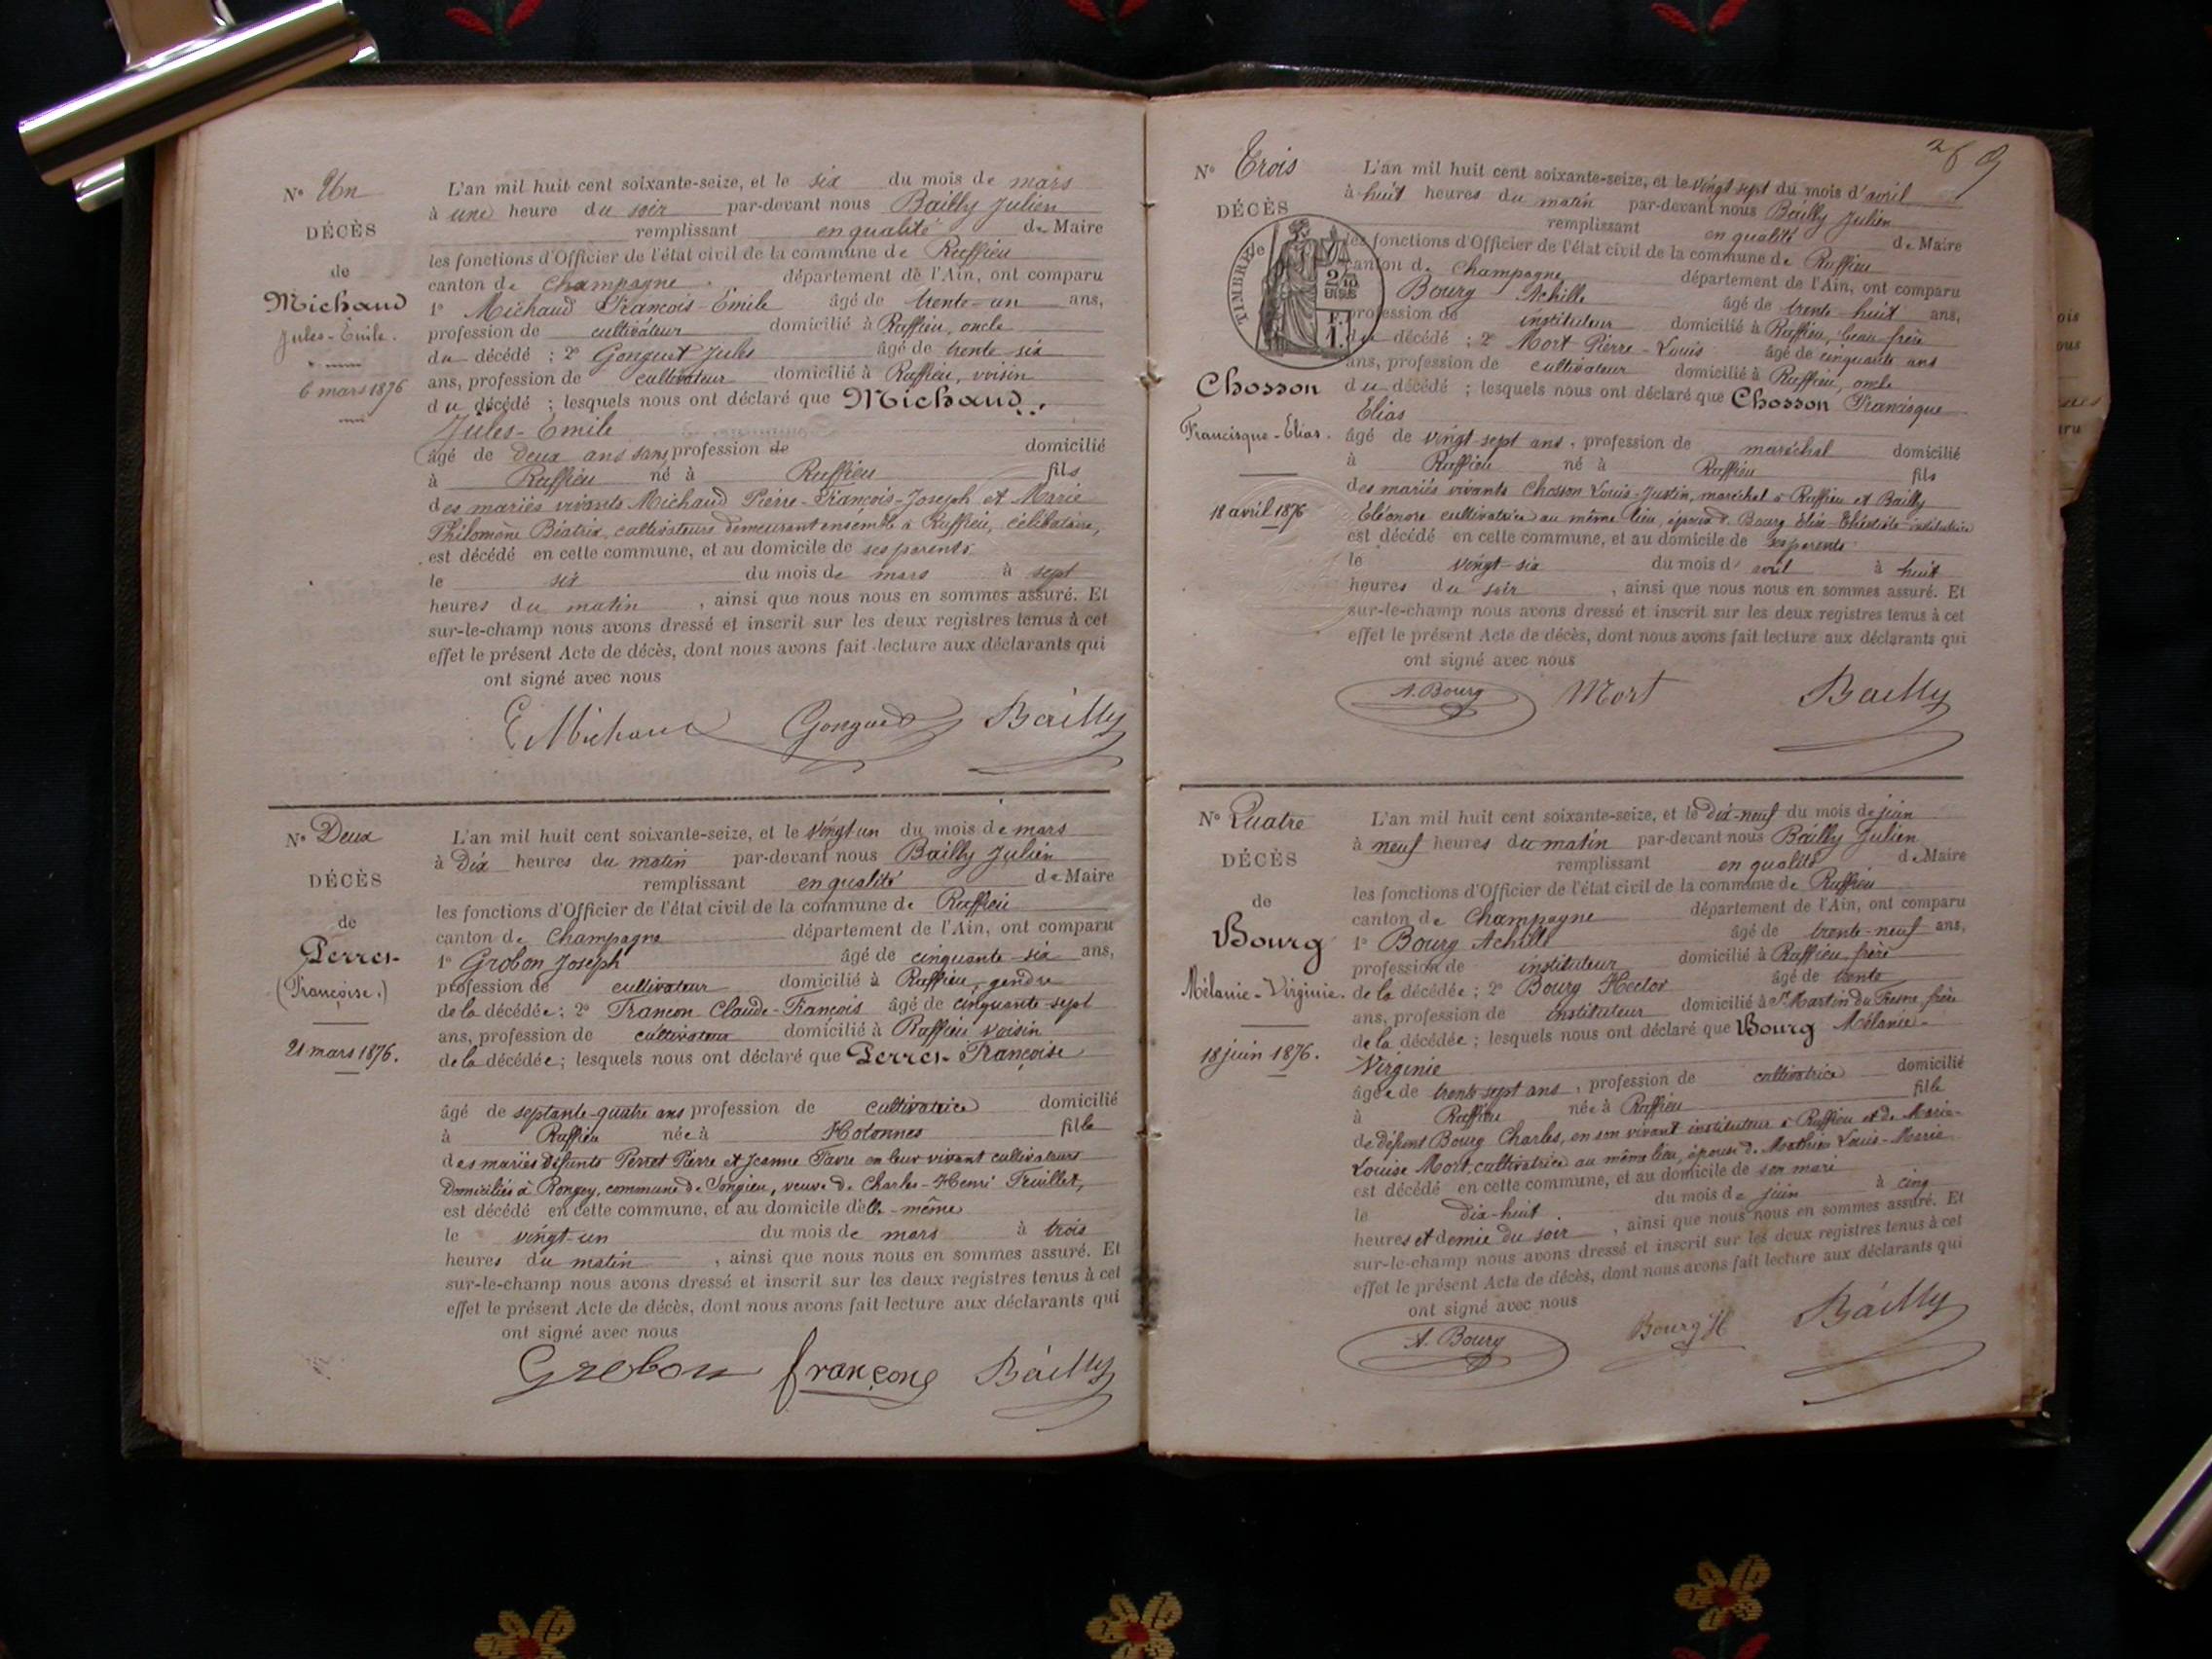 N° Un
DÉCÈS
de
Michaud
Jules-Emile.
6 mars 1876
L'an mil huit cent soixante-seize, et le six du mois de mars
à une heure du soir par-devant nous Bailly Julien
remplissant en qualité de Maire
les fonctions d'Officier de l'état civil de la commune de Ruffieu
canton de Champagne département de l'Ain, ont comparu
1° Michaud François-Emile âgé de trente-un ans,
profession de cultivateur domicilié à Ruffieu, oncle
du décédé ; 2° Gonguet Jules âgé de trente-six
ans, profession de cultivateur domicilié à Ruffieu, voisin
du décédé ; lesquels nous ont déclaré que Michaud
Jules-Emile
âgé de deux ans sans profession de domicilié
à Ruffieu né à Ruffieu fils
des mariés vivants Michaud Pierre-François-Joseph et Marie
Philomène Béatrix, cultivateurs demeurant ensemble à Ruffieu, célibataire,
est décédé en cette commune, et au domicile de ses parents
le six du mois de mars à sept
heures du matin , ainsi que nous nous en sommes assuré. Et
sur-le-champ nous avons dressé et inscrit sur les deux registres tenus à cet
effet le présent Acte de décès, dont nous avons fait lecture aux déclarants qui
ont signé avec nous
E Michaud Gonguet Bailly
N° Deux
DÉCÈS
de
Perret
(Françoise.)
21 mars 1876.
L'an mil huit cent soixante-seize, et le vingt un du mois de mars
à dix heures du matin par-devant nous Bailly Julien
remplissant en qualité de Maire
les fonctions d'Officier de l'état civil de la commune de Ruffieu
canton de Champagne département de l'Ain, ont comparu
1° Grobon Joseph âgé de cinquante-six ans,
profession de cultivateur domicilié à Ruffieu, gendre
de la décédée ; 2° Françon Claude-François âgé de cinquante-sept
ans, profession de cultivateur domicilié à Ruffieu voisin
de la décédée ; lesquels nous ont déclaré que Perret Françoise
âgé de septante-quatre ans profession de cultivatrice domicilié
à Ruffieu née à Hotonnes fille
des mariés défunts Perret Pierre et Jeanne Favre en leur vivant cultivateurs
domiciliés à Rongey, commune de Songieu, veuve de Charles-Henri Feuillet,
est décédé en cette commune, et au domicile d'elle-même
le vingt-un du mois de mars à trois
heures du matin , ainsi que nous nous en sommes assuré. Et
sur-le-champ nous avons dressé et inscrit sur les deux registres tenus à cet
effet le présent Acte de décès, dont nous avons fait lecture aux déclarants qui
ont signé avec nous
Grobon françong Bailly
269
N° Trois
DÉCÈS
TIMBRE de
2/10
EN SUS
F.
1.
Chosson
Francisque-Elias.
18 avril 1876
L'an mil huit cent soixante-seize, et le vingt sept du mois d'avril
à huit heures du matin par-devant nous Bailly Julien
remplissant en qualité de Maire
les fonctions d'Officier de l'état civil de la commune de Ruffieu
canton de Champagne département de l'Ain, ont comparu
Bourg Achille âgé de trente-huit ans,
profession de instituteur domicilié à Ruffieu, beau-frère
du décédé ; 2° Mort Pierre-Louis âgé de cinquante ans
ans, profession de cultivateur domicilié à Ruffieu, oncle
du décédé ; lesquels nous ont déclaré que Chosson Francisque
Elias
âgé de vingt-sept ans, profession de maréchal domicilié
à Ruffieu né à Ruffieu fils
des mariés vivants Chosson Louis-Justin, maréchal à Ruffieu et Bailly
Eléonore cultivatrice au même lieu, époux de Bourg institutrice
est décédé en cette commune, et au domicile de ses parents
le vingt-six du mois d' avril à huit
heures du soir , ainsi que nous nous en sommes assuré. Et
sur-le-champ nous avons dressé et inscrit sur les deux registres tenus à cet
effet le présent Acte de décès, dont nous avons fait lecture aux déclarants qui
ont signé avec nous
A. Bourg Mort Bailly
N° Quatre
DÉCÈS
de
Bourg
Mélanie-Virginie.
18 juin 1876.
L'an mil huit cent soixante-seize, et le dix-neuf du mois de juin
à neuf heures du matin par-devant nous Bailly Julien
remplissant en qualité de Maire
les fonctions d'Officier de l'état civil de la commune de Ruffieu
canton de Champagne département de l'Ain, ont comparu
1° Bourg Achille âgé de trente-neuf ans,
profession de instituteur domicilié à Ruffieu, frère
de la décédée ; 2° Bourg Hector âgé de trente
ans, profession de instituteur domicilié à St Martin du Fresne, frère
de la décédée ; lesquels nous ont déclaré que Bourg Mélanie-
Virginie
âgée de trente sept ans, profession de cultivatrice domicilié
à Ruffieu née à Ruffieu fille
de défunt Bourg Charles, en son vivant instituteur à Ruffieu et de Marie-
Louise Mort, cultivatrice au même lieu, épouse de Mathieu Louis-Marie
est décédé en cette commune, et au domicile de son mari
le dix-huit du mois de juin à cinq
heures et demie du soir , ainsi que nous nous en sommes assuré. Et
sur-le-champ nous avons dressé et inscrit sur les deux registres tenus à cet
effet le présent Acte de décès, dont nous avons fait lecture aux déclarants qui
ont signé avec nous
A. Bourg Bourg H Bailly